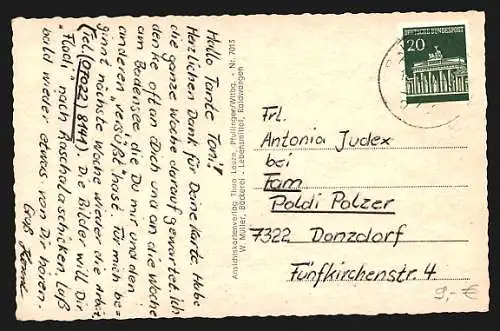 Hallo Tante Toni!
Herzlichen Dank für Deine Karte. Habe
die ganze Woche darauf gewartet. Ich
denke oft an Dich und an die Woche
am Bodensee die Du mir und den
anderen "versüßt" hast. Für mich be-
ginnt nächste Woche wieder die Arbeit.
(Tel. (07022) 8441). Die Bilder will Dir
"Rudi" nach Raschala schicken. Laß
bald wieder etwas von Dir hören.
Gruß
Ansichtskartenverlag Theo Lauze, Pfullingen/Wttbg. - Nr. 7015
W. Müller, Bäckerei - Lebensmittel, Raidwangen
DEUTSCHE BUNDESPOST
20
Frl.
Antonia Judex
bei
Fam
Poldi Polzer
7322 Donzdorf
Fünfkirchenstr. 4
9,- €